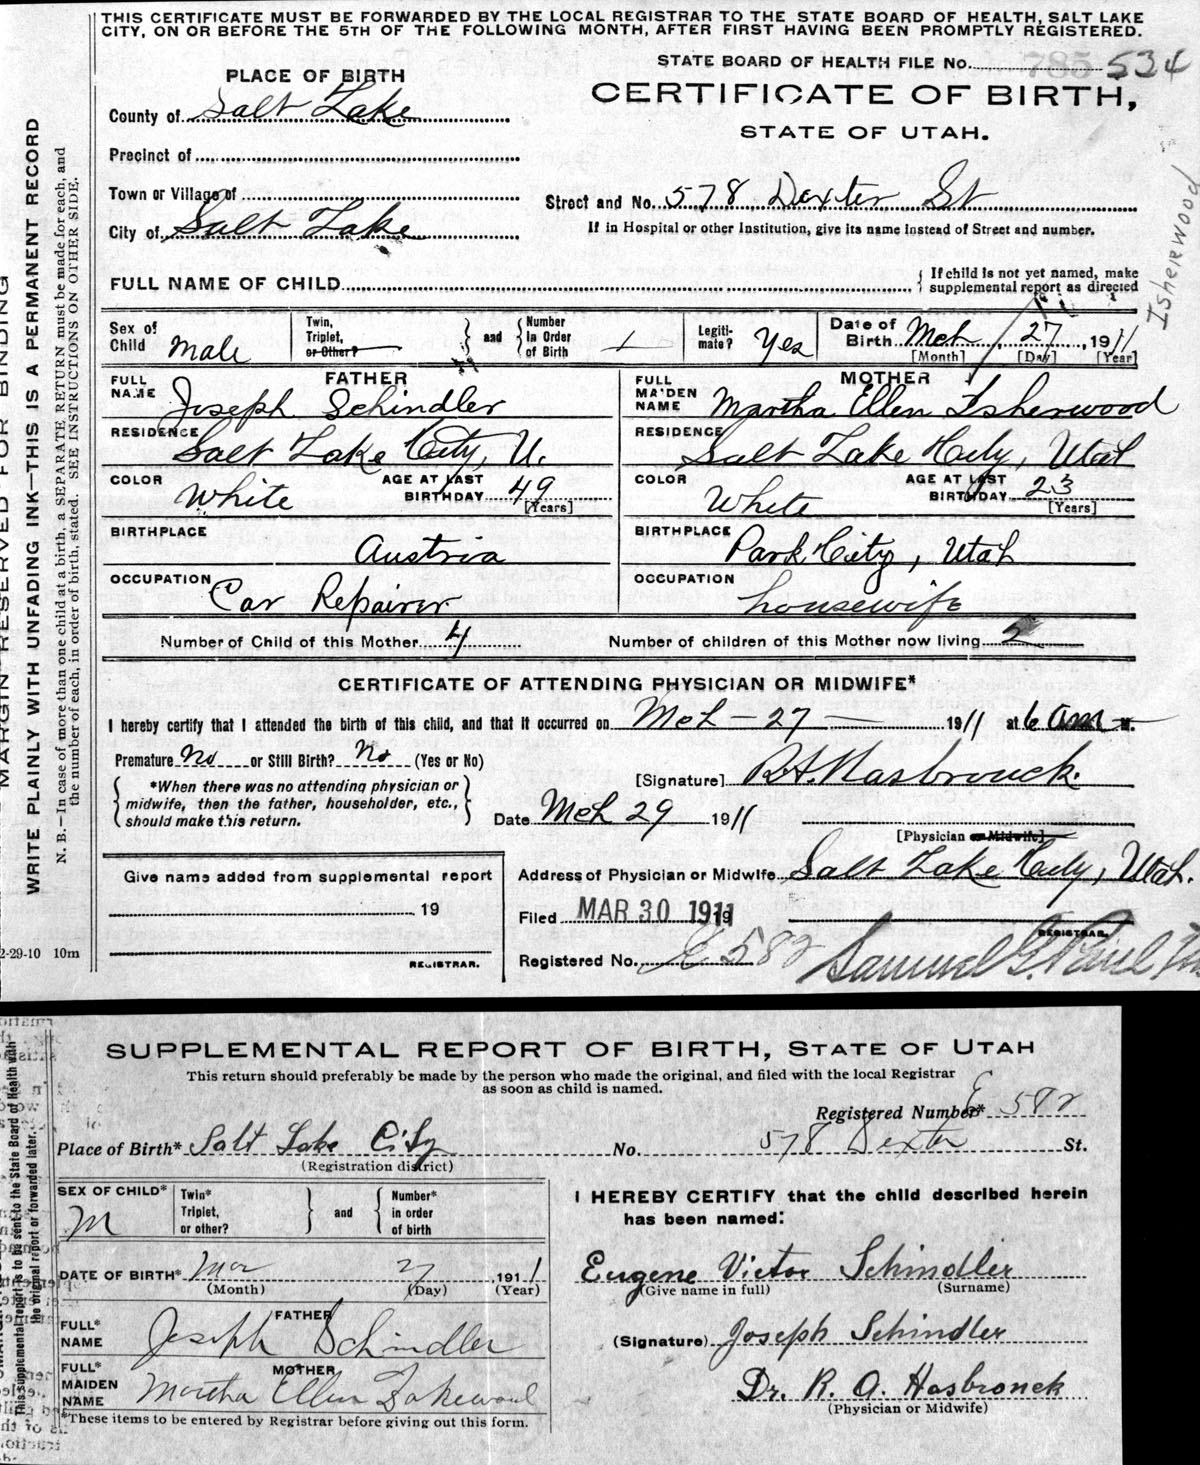 THIS CERTIFICATE MUST BE FORWARDED BY THE LOCAL REGISTRAR TO THE STATE BOARD OF HEALTH, SALT LAKE
CITY, ON OR BEFORE THE 5TH OF THE FOLLOWING MONTH, AFTER FIRST HAVING BEEN PROMPTLY REGISTERED.
STATE BOARD OF HEALTH FILE No. 785 534
PLACE OF BIRTH
CERTIFICATE OF BIRTH,
STATE OF UTAH.
County of Salt Lake
Precinct of
Town or Village of
Street and No. 578 Dexter St
City of Salt Lake
If in Hospital or other Institution, give its name instead of Street and number.
Isherwood
FULL NAME OF CHILD
If child is not yet named, make
supplemental report as directed
Sex of Child Male
Twin, Triplet, or Other?
and
Number In Order of Birth
Legiti-mate? Yes
Date of Birth Mch 27, 1911
[Month] [Day] [Year]
FATHER
FULL NAME Joseph Schindler
RESIDENCE Salt Lake City, U.
COLOR White
AGE AT LAST BIRTHDAY 49 [Years]
BIRTHPLACE Austria
OCCUPATION Car Repairer
MOTHER
FULL MAIDEN NAME Martha Ellen Isherwood
RESIDENCE Salt Lake City, Utah
COLOR White
AGE AT LAST BIRTHDAY 23 [Years]
BIRTHPLACE Park City, Utah
OCCUPATION housewife
Number of Child of this Mother 4
Number of children of this Mother now living 2
CERTIFICATE OF ATTENDING PHYSICIAN OR MIDWIFE*
I hereby certify that I attended the birth of this child, and that it occurred on Mch - 27 - 1911 at 6 am M.
Premature No or Still Birth? No (Yes or No)
*When there was no attending physician or
midwife, then the father, householder, etc.,
should make this return.
[Signature] R.A. Hasbrouck.
Date Mch 29 1911
[Physician or Midwife]
Give name added from supplemental report
19
REGISTRAR.
Address of Physician or Midwife Salt Lake City, Utah.
Filed MAR 30 1911 19
REGISTRAR.
Registered No. 582
Samuel G. Paul
2-29-10 10m
MARGIN RESERVED FOR BINDING
WRITE PLAINLY WITH UNFADING INK—THIS IS A PERMANENT RECORD
N. B.—In case of more than one child at a birth, a SEPARATE RETURN must be made for each, and
the number of each, in order of birth, stated. SEE INSTRUCTIONS ON OTHER SIDE.
SUPPLEMENTAL REPORT OF BIRTH, STATE OF UTAH
This return should preferably be made by the person who made the original, and filed with the local Registrar
as soon as child is named.
Registered Number* 582
Place of Birth* Salt Lake City No. 578 Dexter St.
(Registration district)
SEX OF CHILD* M
Twin* Triplet, or other?
and
Number* in order of birth
DATE OF BIRTH* Mar 27, 1911
(Month) (Day) (Year)
FATHER
FULL* NAME Joseph Schindler
MOTHER
FULL* MAIDEN NAME Martha Ellen
*These items to be entered by Registrar before giving out this form.
I HEREBY CERTIFY that the child described herein
has been named:
Eugene Victor Schindler
(Give name in full) (Surname)
(Signature) Joseph Schindler
Dr. R. A. Hasbronck
(Physician or Midwife)
This supplemental report is to be sent to the State Board of Health with
the original report or forwarded later.